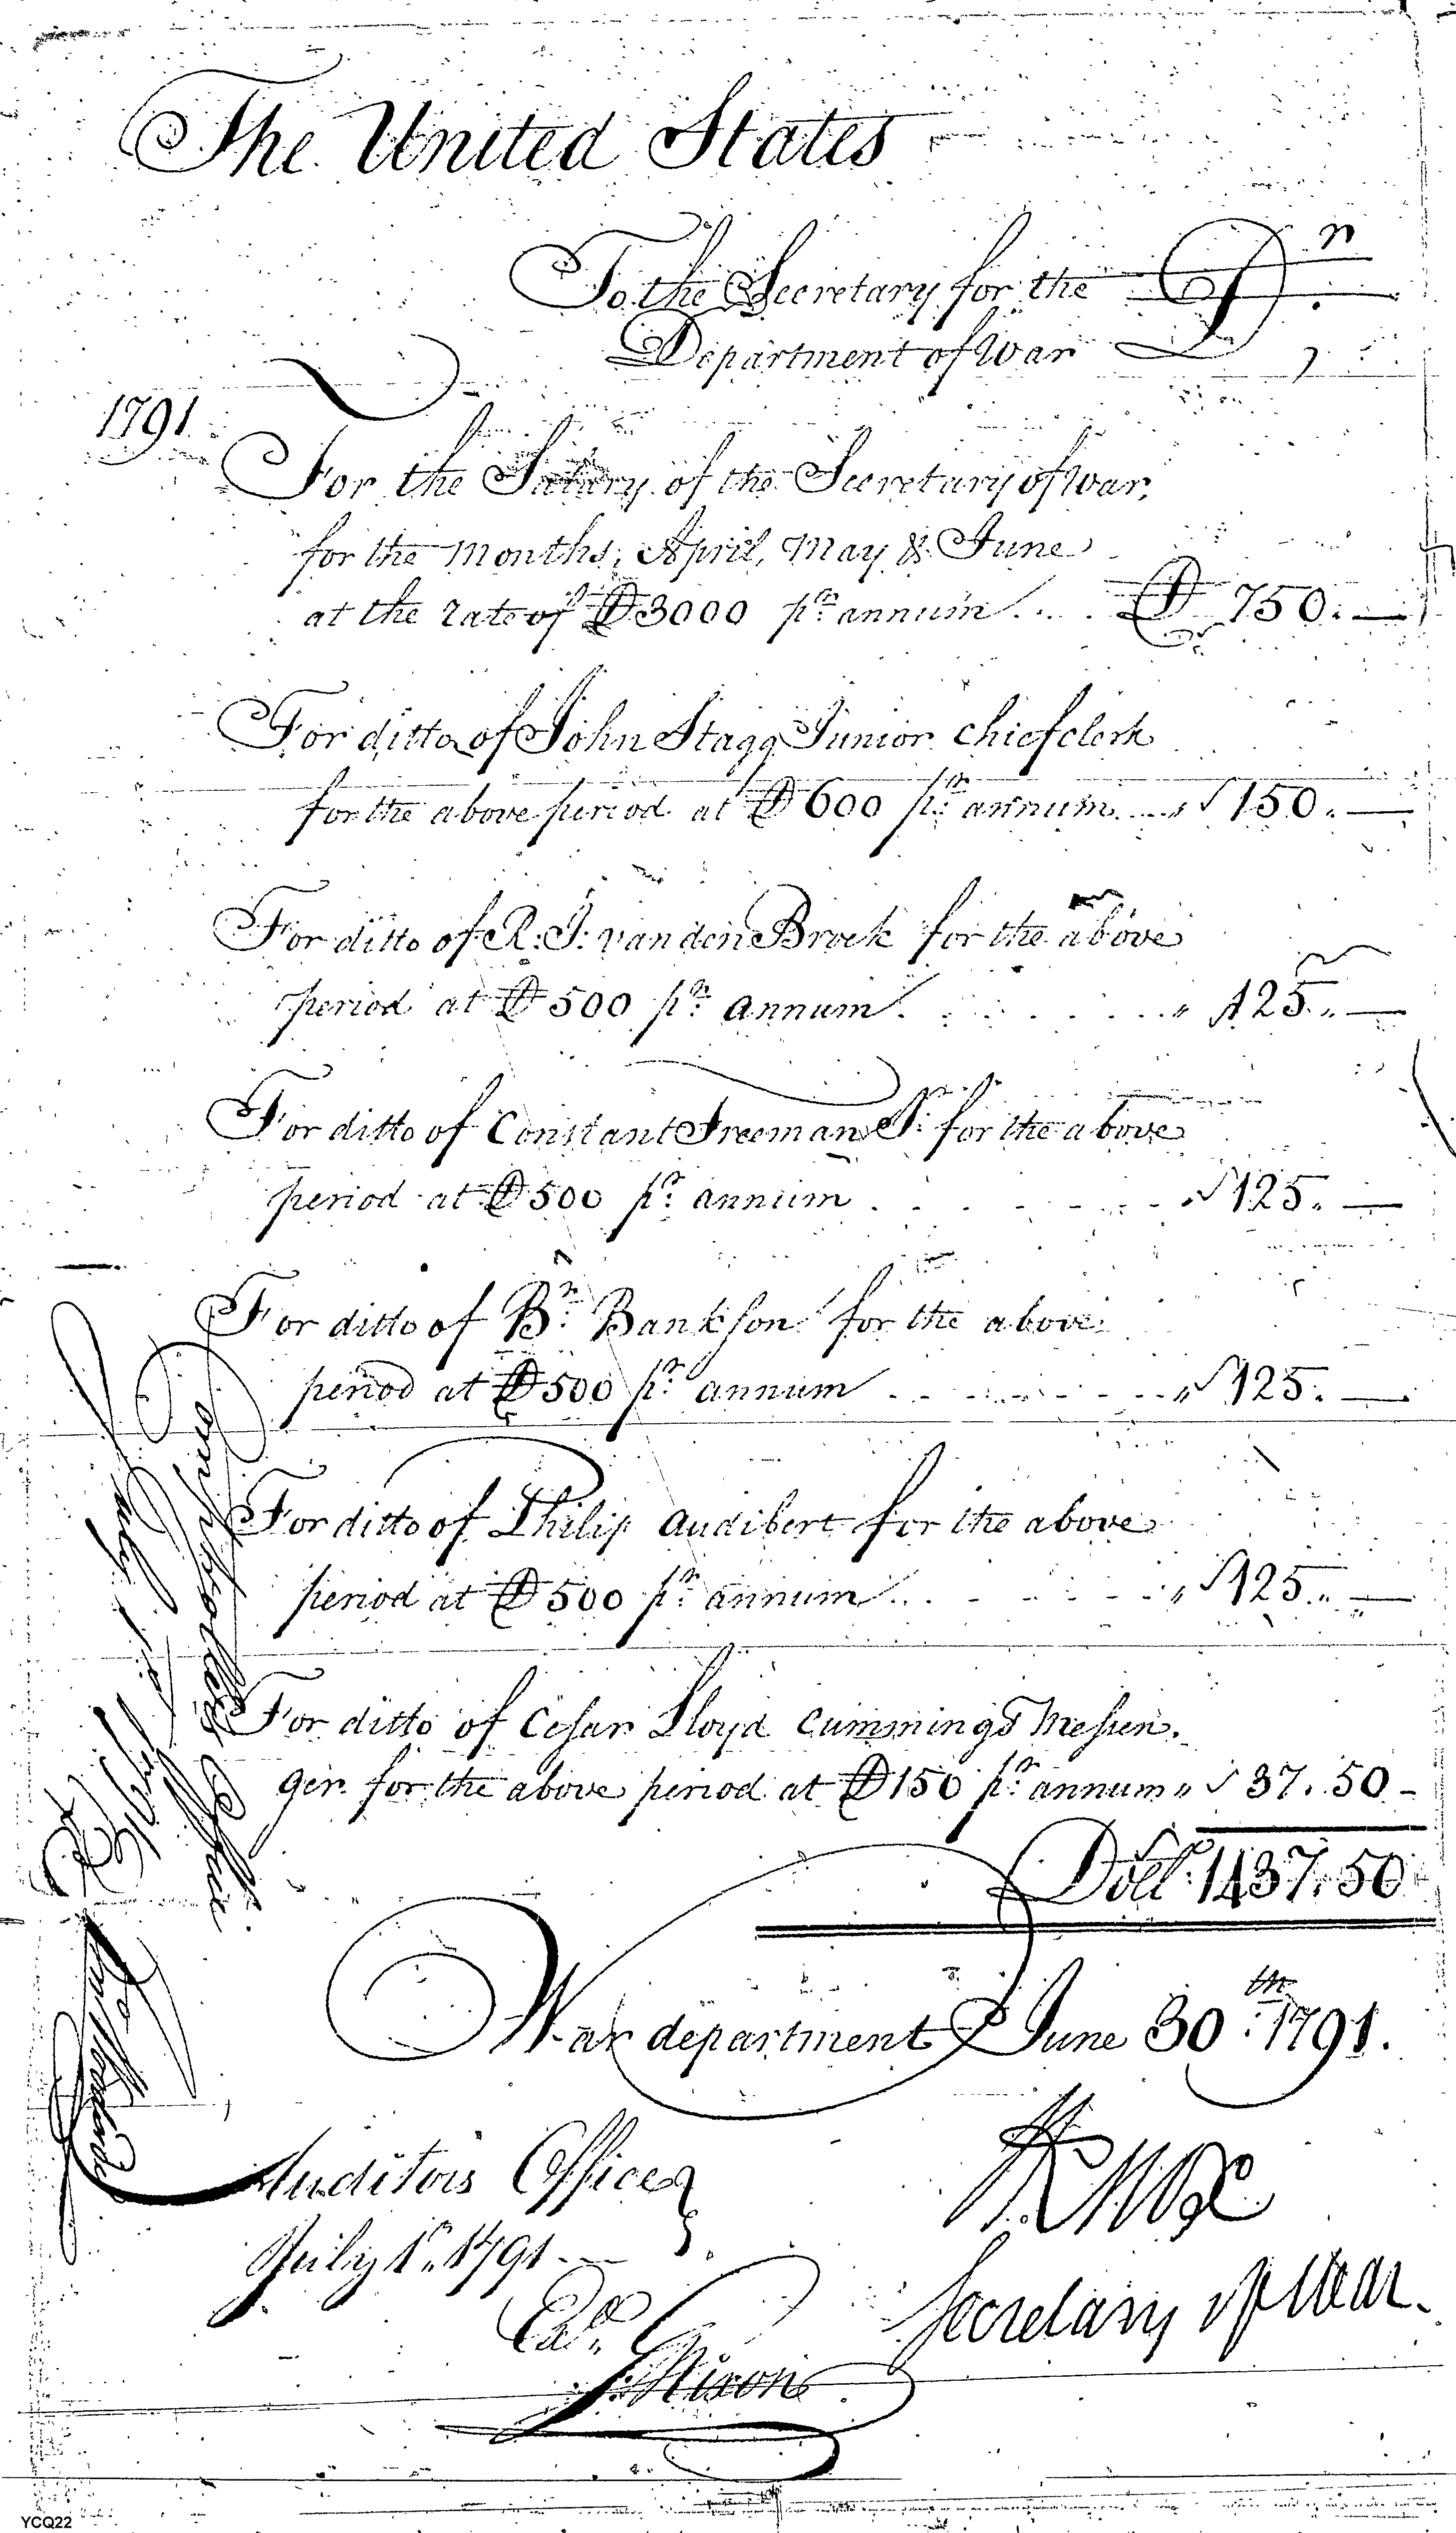 The United States
To the Secretary for the Dr.
Department of War
1791
For the Salary of the Secretary of war,
for the months, April, May & June
at the rate of D 3000 pr. annum .... D 750. —
For ditto of John Stagg Junior chief clerk
for the above period at D 600 pr. annum .... " 150. —
For ditto of R: J: vanden Broek for the above
period at D 500 pr. annum . . . . . . " 125. —
For ditto of Constant Freeman Jr. for the above
period at D 500 pr. annum . . . . . . " 125. —
For ditto of Bn. Bankson for the above
period at D 500 pr. annum . . . . . . " 125. —
For ditto of Philip Audibert for the above
period at D 500 pr. annum . . . . . . " 125. —
For ditto of Cesar Lloyd Cummings Messen.
ger for the above period at D 150 pr. annum " 37. 50 -
Doll. 1437. 50
War department June 30th. 1791.
Auditors Office
July 1st. 1791 —
Exd.
J. Nixon
Knox
Secretary of War.
Comptrollers Office
July 1st 1791
YCQ22